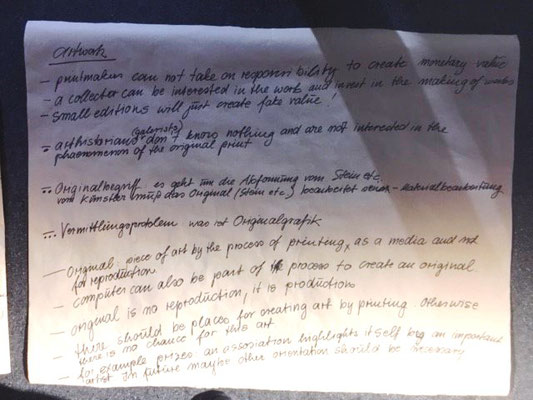 artwork
- printmaker can not take on responsibility to create monetary value
- a collector can be interested in the work and invest in the making of works
- small editions will just create fake value!
- arthistorians (galerists) don't know nothing and are not interested in the
phaenomenon of the original print
Originalbegriff es geht um die Abformung vom Stein etc.
vom Künstler muß das Original (Stein etc.) bearbeitet - Materialbearbeitung
... Vermittlungsproblem was ist Originalgrafik
- Original: piece of art by the process of printing, as a media and not
for reproduction
- computer can also be part of process to create an original
- original is no reproduction, it is production
- there should be places for creating art by printing. Otherwise
there is no chance for this art
- for example prizes: an association highlights itself by an important
artist. In future maybe other orientation should be necessary